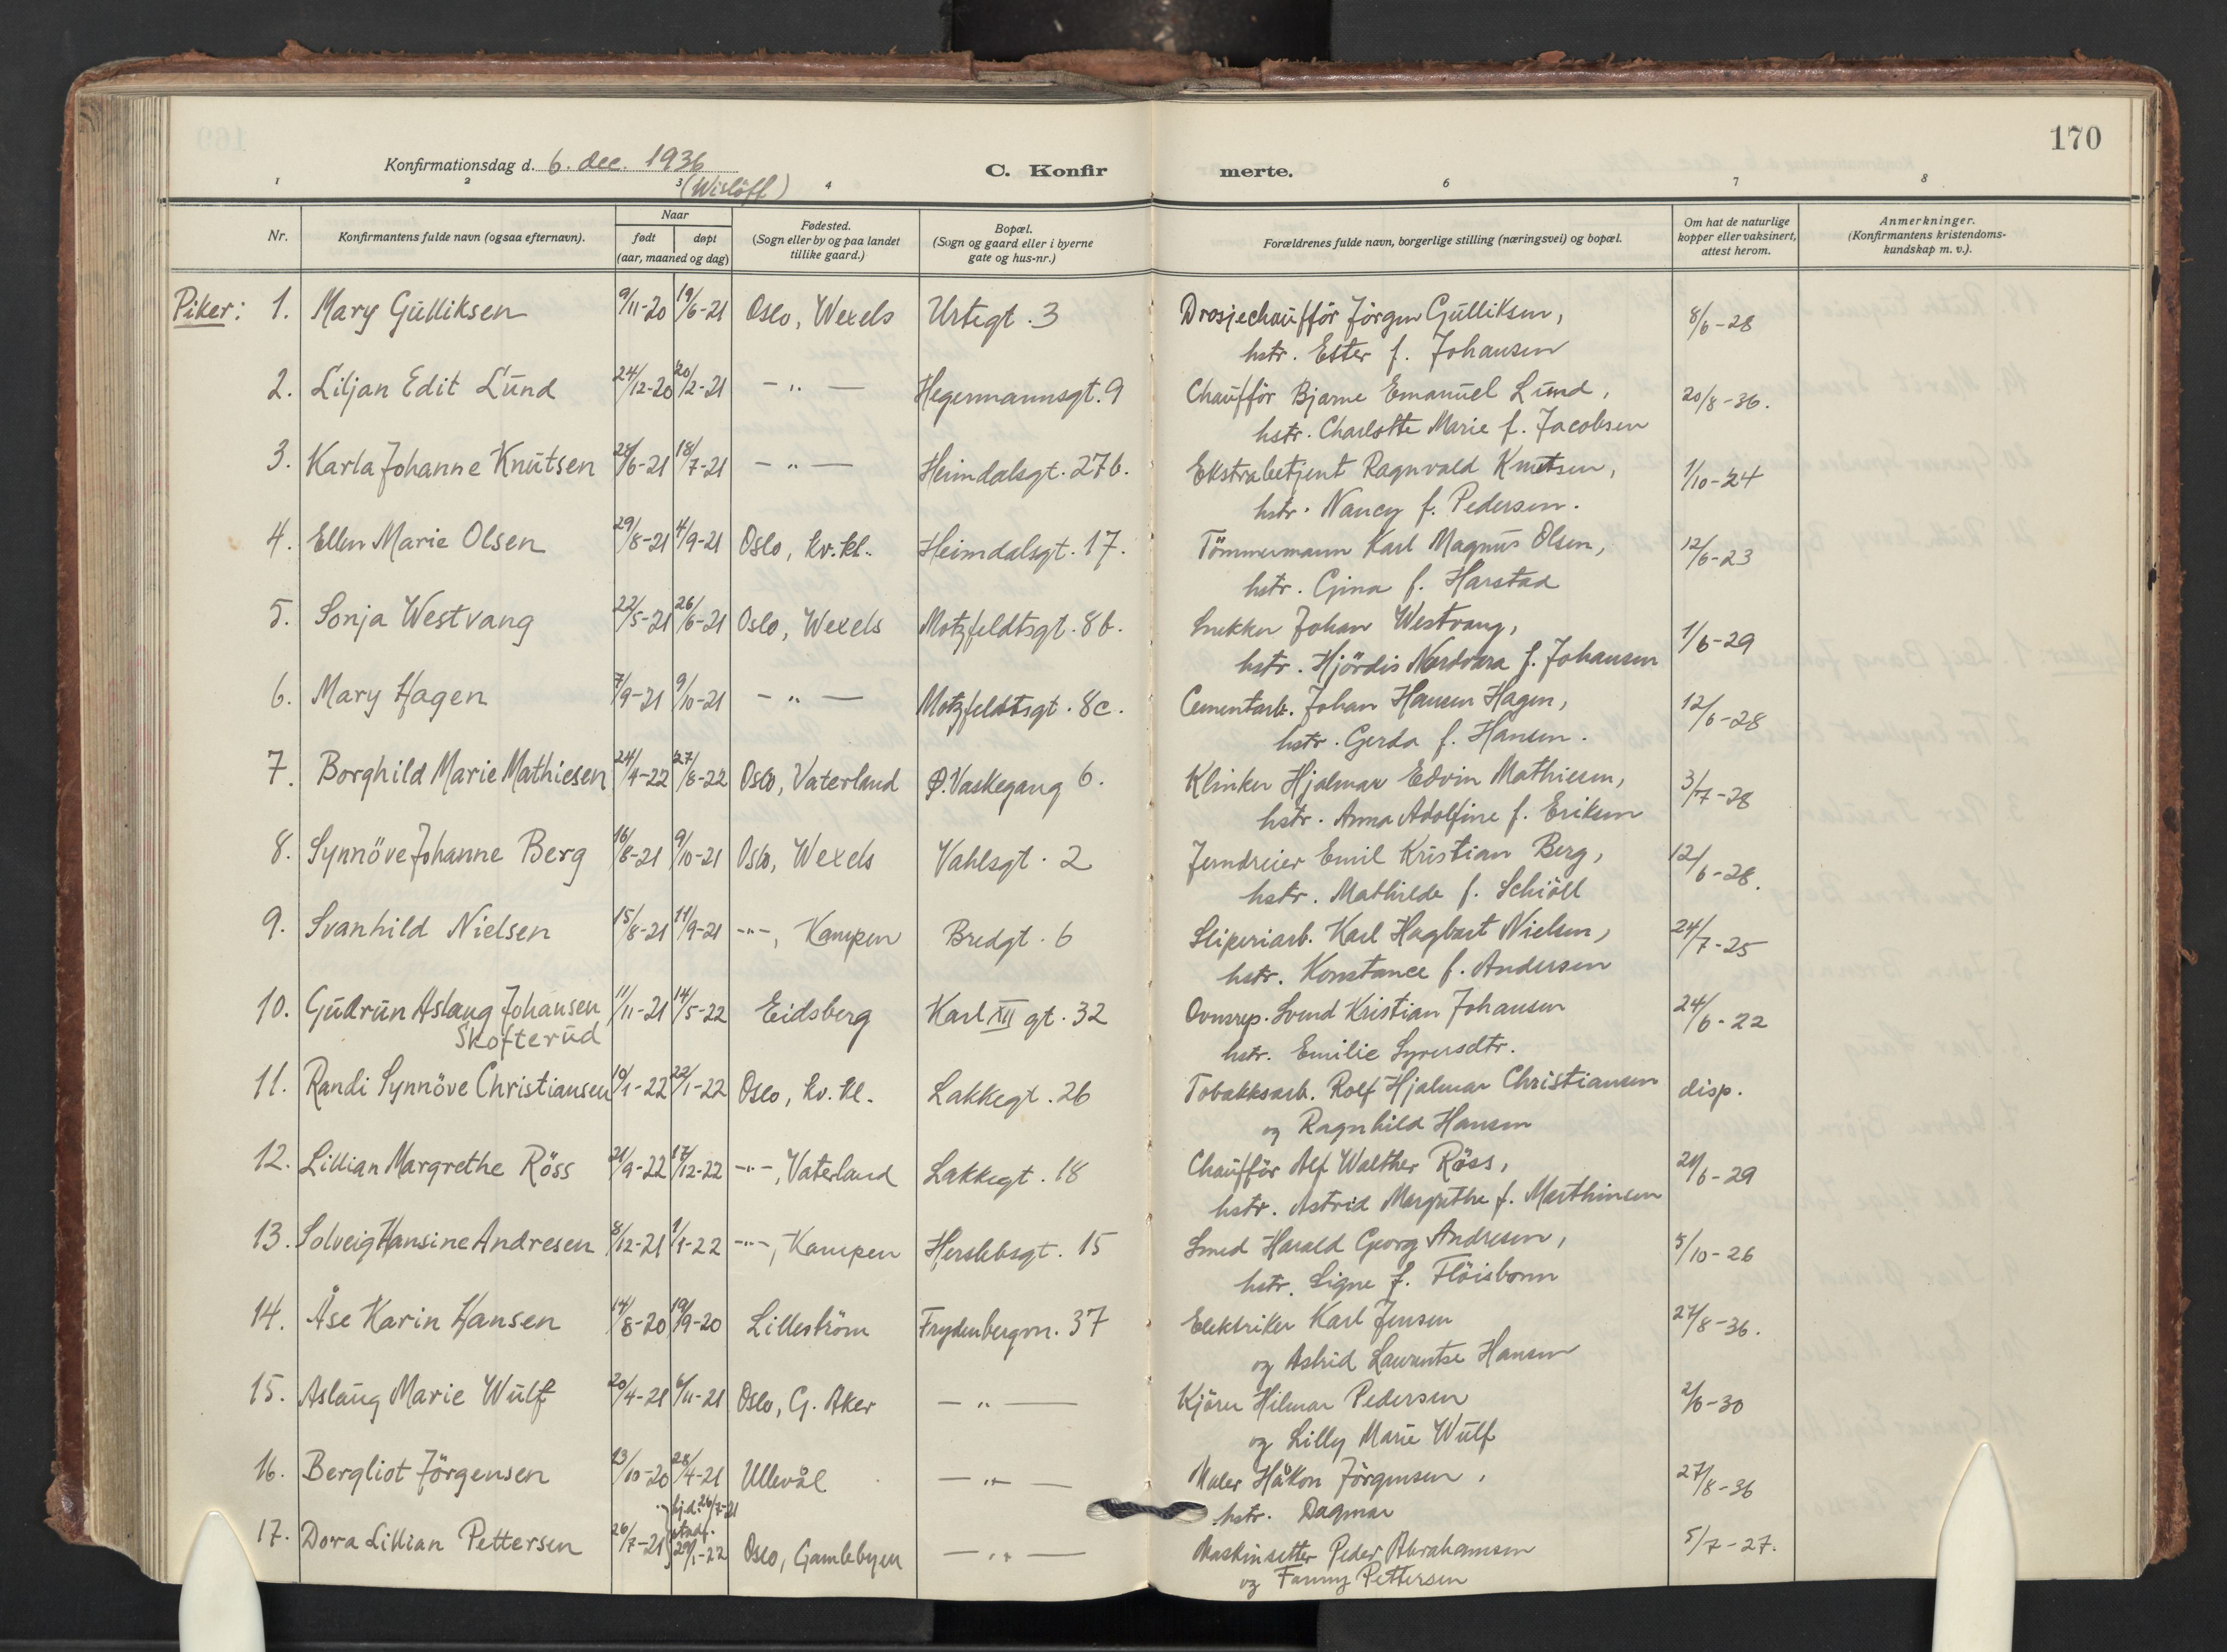 170
Konfirmationsdag d. 6. dec. 1936
(Wislöff)
C. Konfir merte.
1 2 3 4 6 7 8
Nr.
Konfirmantens fulde navn (ogsaa efternavn).
Naar
født døpt
(aar, maaned og dag)
Fødested.
(Sogn eller by og paa landet
tillike gaard.)
Bopæl.
(Sogn og gaard eller i byerne
gate og hus-nr.)
Forældrenes fulde navn, borgerlige stilling (næringsvei) og bopæl.
Om hat de naturlige
kopper eller vaksinert,
attest herom.
Anmerkninger.
(Konfirmantens kristendoms-
kundskap m. v.).
Piker: 1. Mary Gulliksen 9/11-20 19/6-21 Oslo, Wexels Urtegt. 3 Drosjechauffør Jörgen Gulliksen, 8/6-28
hstr. Ester f. Johansen
2. Liljan Edit Lund 24/12-20 20/2-21 - " - Hegermannsgt. 9 Chauffør Bjarne Emanuel Lund, 20/8-36.
hstr. Charlotte Marie f. Jacobsen
3. Karla Johanne Knutsen 28/6-21 18/7-21 - " - Heimdalsgt. 27b. Ekstrabetjent Ragnvald Knutsen, 1/10-24
hstr. Nancy f. Pedersen.
4. Ellen Marie Olsen 29/8-21 4/9-21 Oslo, kv.kl. Heimdalsgt. 17. Tömmermann Karl Magnus Olsen, 12/6-23
hstr. Gina f. Harstad
5. Sonja Westvang 22/5-21 26/6-21 Oslo, Wexels Motzfeldtsgt. 8b. Snekker Johan Westvang, 1/6-29
hstr. Hjördis f. Johansen
6. Mary Hagen 7/9-21 9/10-21 - " - Motzfeldtsgt. 8c. Cementarb. Johan Hansen Hagen, 12/6-28
hstr. Gerda f. Hansen.
7. Borghild Marie Mathiesen 24/4-22 27/8-22 Oslo, Vaterland Ø. Vaskegang 6. Klinker Hjalmar Edvin Mathiesen, 3/7-28
hstr. Anna Adolfine f. Eriksen
8. Synnöve Johanne Berg 16/8-21 9/10-21 Oslo, Wexels Vahlsgt. 2 Jerndreier Emil Kristian Berg, 12/6-28.
hstr. Mathilde f. Schiöll
9. Svanhild Nielsen 15/8-21 11/9-21 -"-, Kampen Bredgt. 6 Sliperiarb. Karl Hagbart Nielsen, 24/7-25
hstr. Konstance f. Andersen
10. Gudrun Aslaug Johansen 11/11-21 14/5-22 Eidsberg Karl XII gt. 32 Ovnsrep. Svend Kristian Johansen 24/6-22
Skofterud hstr. Emilie Syversdtr.
11. Randi Synnöve Christiansen 10/1-22 22/1-22 Oslo, kv. kl. Lakkegt. 26 Tobakksarb. Rolf Hjalmar Christiansen disp.
og Ragnhild Hansen
12. Lillian Margrethe Röss 21/9-22 17/12-22 -"-, Vaterland Lakkegt. 18 Chauffør Alf Walther Röss, 21/6-29
hstr. Astrid Margrethe f. Marthinsen
13. Solveig Hansine Andresen 8/12-21 1/1-22 -"-, Kampen Herslebsgt. 15 Smed Harald Georg Andresen, 5/10-26
hstr. Signe f. Flöisbonn
14. Åse Karin Hansen 14/8-20 19/9-20 Lilleström Frydenbergvn. 37 Elektriker Karl Jensen 27/8-36.
og Astrid Laurentse Hansen
15. Aslaug Marie Wulf 20/4-21 6/11-21 Oslo, G. Aker - " - Kjörer Hilmar Pedersen 2/6-30
og Lilly Marie Wulf
16. Bergliot Jörgensen 13/10-20 28/4-21 Ullevål - " - Maler Håkon Jörgensen, 27/8-36
hstr. Dagmar
17. Dora Lillian Pettersen 26/7-21 hj.d. 26/7-21 stadf. 29/1-22 Oslo, Gamlebyen - " - Maskinsetter Peder Abrahamsen 5/7-27.
og Fanny Pettersen